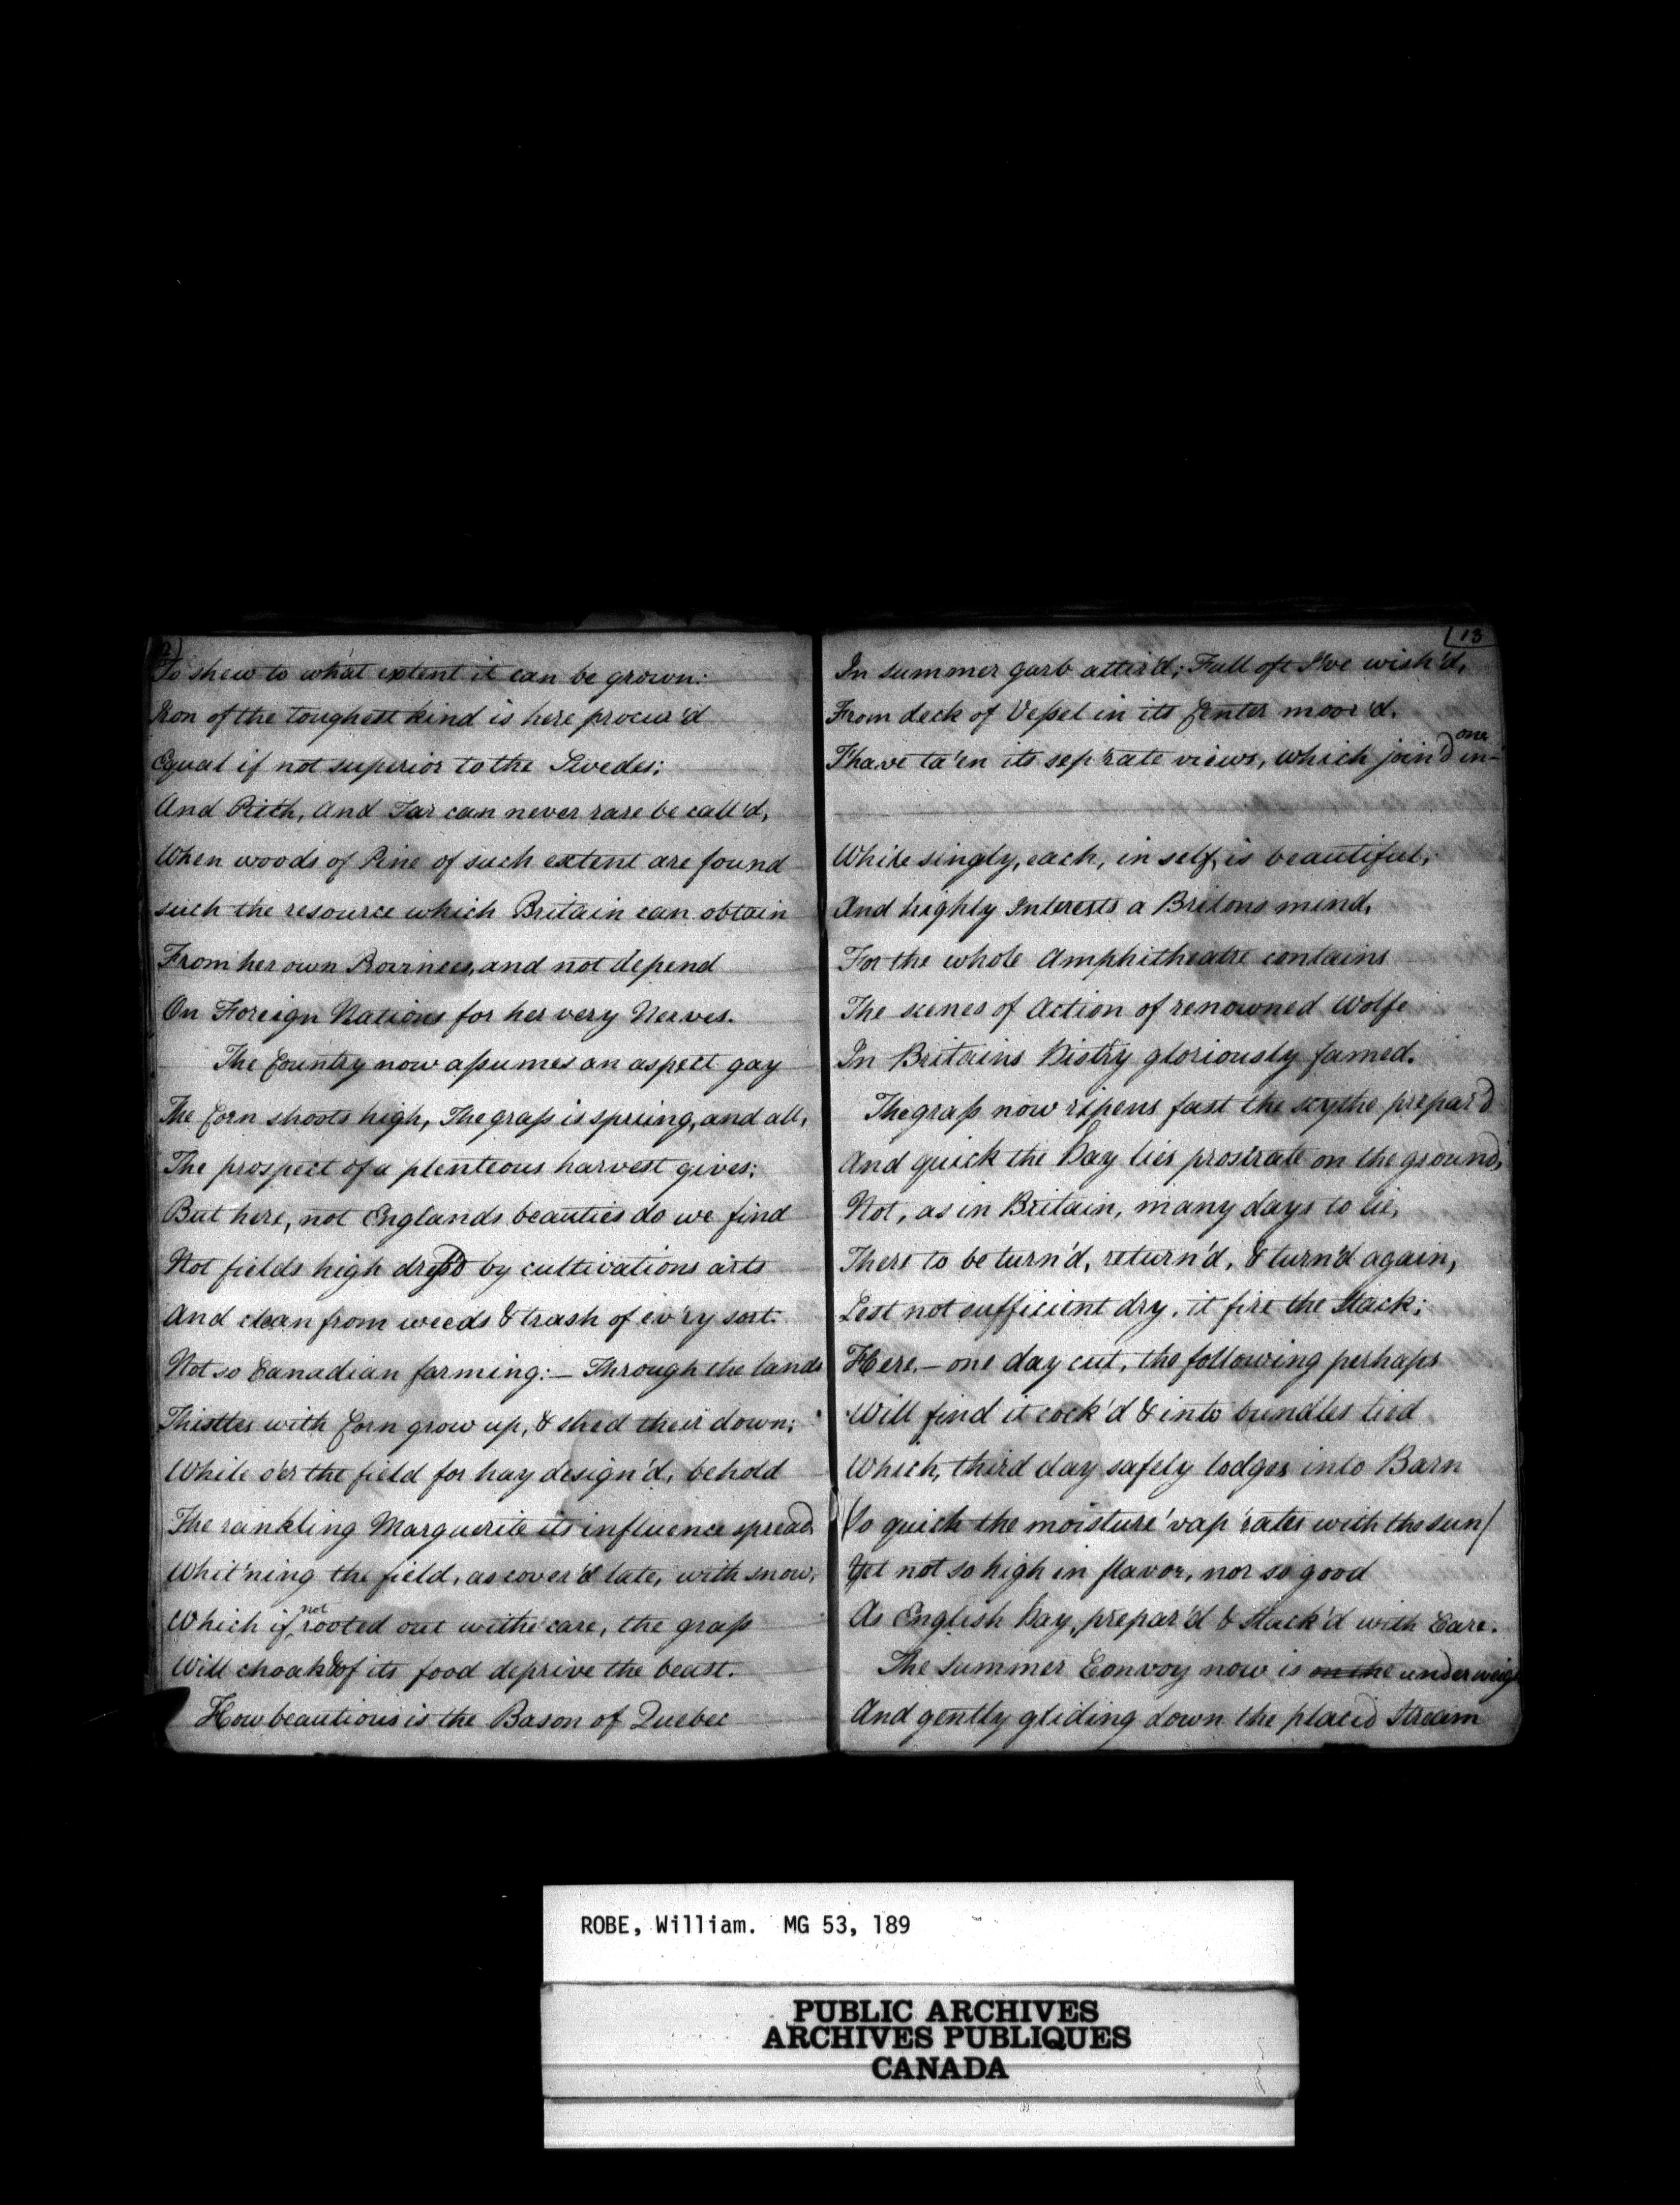 To shew to what extent it can be grown:
Iron of the toughest kind is here procur'd
Equal if not superior to the Swedes:
And Pitch, And Tar can never rare be call'd,
When woods of Pine of such extent are found
such the resource which Britain can obtain
From her own Provinces, and not depend
On Foreign Nations for her very Nerves.
The Country now aſsumes an aspect gay
The Corn shoots high, The graſs is spring, and all,
The prospect of a plenteous harvest gives;
But here, not Englands beauties do we find
Not fields high dreſs'd by cultivations arts
And clean from weeds & trash of ev'ry sort.
Not so Canadian farming:— Through the lands
Thistles with Corn grow up, & shed their down;
While o'er the field for hay design'd, behold
The rankling Marguerite its influence spread
Whit'ning the field, as cover'd late, with snow,
Which if not rooted out withe care, the graſs
Will choak & of its food deprive the beast.
How beautious is the Bason of Quebec
13
In summer garb attir'd; Full oft I've wish'd,
From deck of Veſsel in its Center moor'd.
T'have ta'en its sep'rate views, which join'd in one
While singly, each, in self, is beautiful,
And highly Interests a Britons mind,
For the whole Amphitheatre contains
The scenes of Action of renowned Wolfe
In Britains Histry gloriously famed.
The graſs now ripens fast the scythe prepar'd
And quick the Hay lies prostrate on the ground,
Not, as in Britain, many days to lie,
There to be turn'd, return'd, & turn'd again,
Lest not sufficient dry, it fire the Stack;
Here,— one day cut, the following perhaps
Will find it cock'd & into bundles tied
Which, third day safely lodges into Barn
(So quick the moisture 'vap'rates with the sun/
Yet not so high in flavor, nor so good
As English Hay, prepar'd & stack'd with Care.
The Summer Convoy now is on the underweigh
And gently gliding down the placid Stream
ROBE, William. MG 53, 189
PUBLIC ARCHIVES
ARCHIVES PUBLIQUES
CANADA